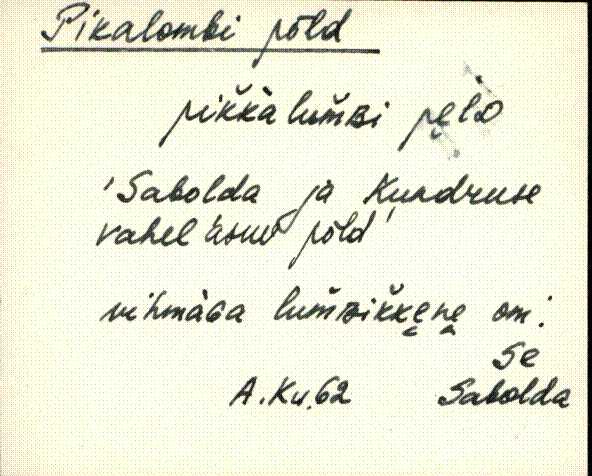 Pikalombi põld
pik̆k̀ălum̆ʙi pe̮lᴅ
'Sabolda ja Kundruse
vahel asuv põld'
vihmàɢa lum̆ʙik̆ke̮ne̮ om.
Se
A.Ku.62 Sabolda